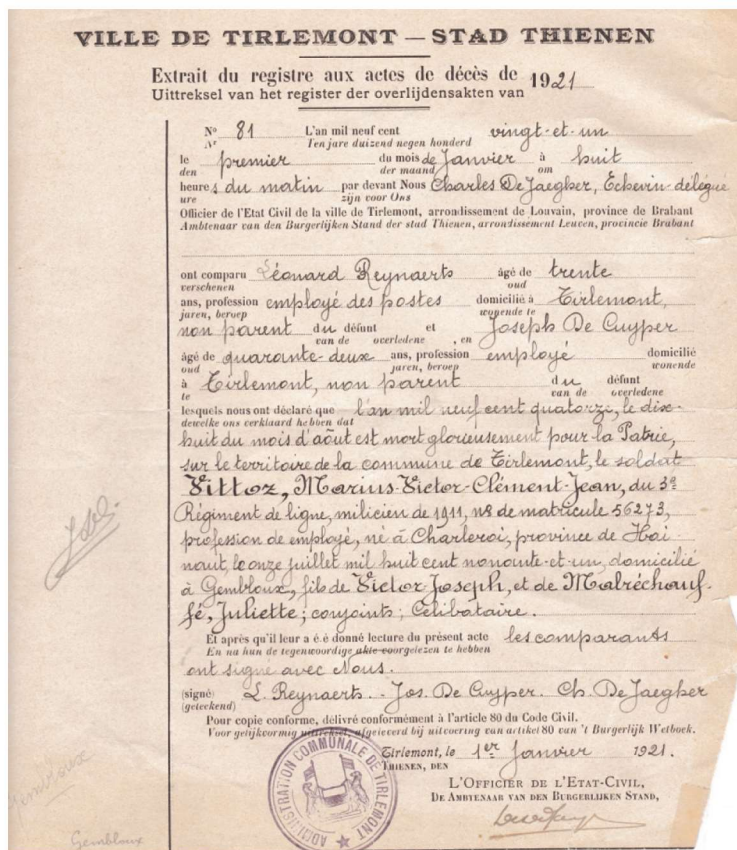 VILLE DE TIRLEMONT — STAD THIENEN
Extrait du registre aux actes de décès de 1921
Uittreksel van het register der overlijdensakten van
No 81 L'an mil neuf cent vingt-et-un
Nr Ten jare duizend negen honderd
le premier du mois de Janvier à huit
den der maand om
heures du matin par devant Nous Charles De Jaegher, Echevin délégué
ure zijn voor Ons
Officier de l'Etat Civil de la ville de Tirlemont, arrondissement de Louvain, province de Brabant
Ambtenaar van den Burgerlijken Stand der stad Thienen, arrondissement Leuven, provincie Brabant
ont comparu Léonard Reynaerts âgé de trente
verschenen oud
ans, profession employé des postes domicilié à Tirlemont,
jaren, beroep wonende te
non parent du défunt et Joseph De Cuyper
van de overledene , en
âgé de quarante-deux ans, profession employé domicilié
oud jaren, beroep wonende
à Tirlemont, non parent du défunt
te van de overledene
lesquels nous ont déclaré que l'an mil neuf cent quatorze, le dix-
dewelke ons verklaard hebben dat
huit du mois d'août est mort glorieusement pour la Patrie,
sur le territoire de la commune de Tirlemont, le soldat
Vittoz, Marius-Victor-Clément-Jean, du 3e
Régiment de ligne, milicien de 1911, no de matricule 56273,
profession de employé, né à Charleroi, province de Hai-
naut, le onze juillet mil huit cent nonante-et-un, domicilié
à Gembloux, fils de Victor Joseph, et de Malréchauf-
fé, Juliette; conjoints; Célibataire.
Et après qu'il leur a é é donné lecture du présent acte les comparants
En na hun de tegenwoordige akte voorgelezen te hebben
ont signé avec Nous.
(signé) L. Reynaerts - Jos. De Cuyper. Ch. De Jaegher
(geteekend)
Pour copie conforme, délivré conformément à l'article 80 du Code Civil.
Voor gelijkvormig uittreksel, afgeleverd bij uitvoering van artikel 80 van 't Burgerlijk Wetboek.
Tirlemont, le 1er Janvier 1921.
THIENEN, DEN
L'OFFICIER DE L'ETAT-CIVIL,
DE AMBTENAAR VAN DEN BURGERLIJKEN STAND,
ADMINISTRATION COMMUNALE DE TIRLEMONT
Gembloux
Gembloux